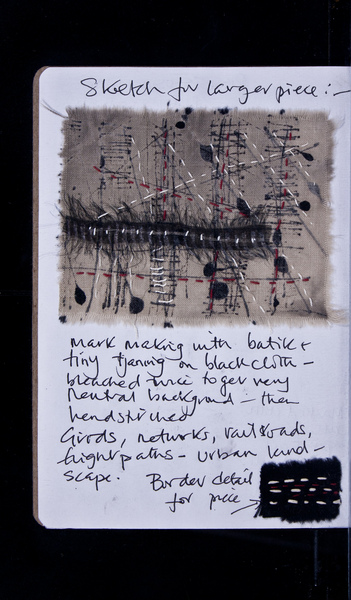 Sketch for larger piece:-
mark making with batik &
tiny tjanting on black cloth -
bleached twice to get very
neutral background - then
handstitched
Girds, networks, railroads,
flight paths - urban land-
scape.
Border detail
for piece